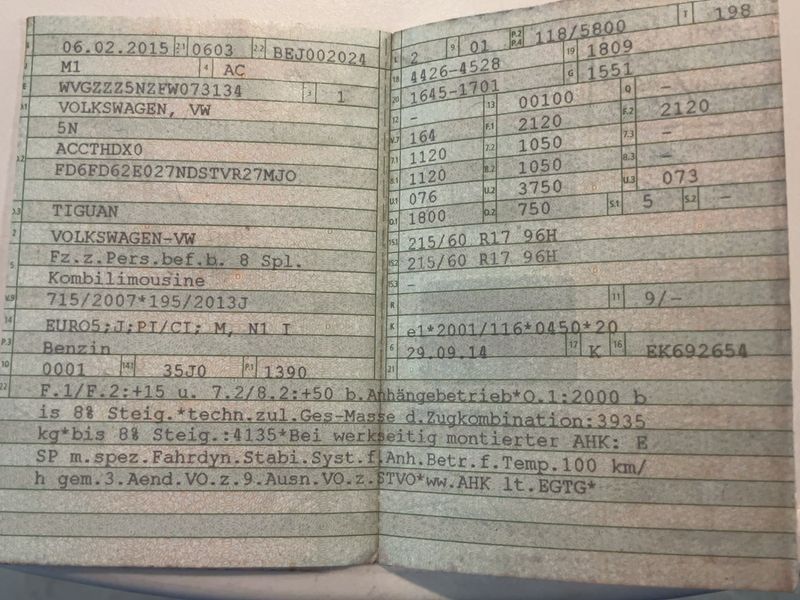 B 06.02.2015 2.1 0603 2.2 BEJ002024
J M1 4 AC
E WVGZZZ5NZFW073134 3 1
VOLKSWAGEN, VW
5N
ACCTHDX0
D.2 FD6FD62E027NDSTVR27MJO
D.3 TIGUAN
2 VOLKSWAGEN-VW
5 Fz.z.Pers.bef.b. 8 Spl.
Kombilimousine
V.9 715/2007*195/2013J
14 EURO5;J;PI/CI; M, N1 I
P.3 Benzin
10 0001 14.1 35J0 P.1 1390
L 2 9 01 P.2 P.4 118/5800 T 198
18 4426-4528 19 1809
20 1645-1701 G 1551
12 - 13 00100 Q -
V.7 164 F.1 2120 F.2 2120
7.1 1120 7.2 1050 7.3 -
8.1 1120 8.2 1050 8.3 -
U.1 076 U.2 3750 U.3 073
O.1 1800 O.2 750 S.1 5 S.2 -
15.1 215/60 R17 96H
15.2 215/60 R17 96H
15.3 -
R 11 9/-
K e1*2001/116*0450*20
6 29.09.14 17 K 16 EK692654
21
22 F.1/F.2:+15 u. 7.2/8.2:+50 b.Anhängebetrieb*O.1:2000 b
is 8% Steig.*techn.zul.Ges-Masse d.Zugkombination:3935
kg*bis 8% Steig.:4135*Bei werkseitig montierter AHK: E
SP m.spez.Fahrdyn.Stabi.Syst.f.Anh.Betr.f.Temp.100 km/
h gem.3.Aend.VO.z.9.Ausn.VO.z.STVO*ww.AHK lt.EGTG*